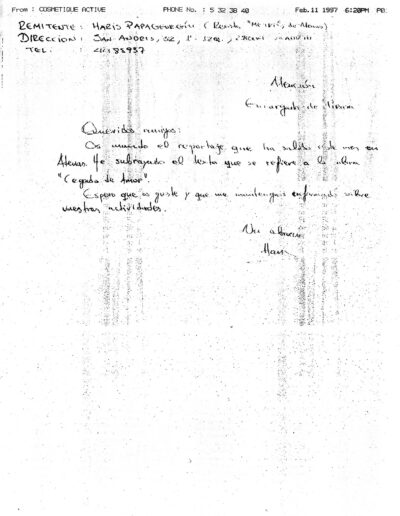 From : COSMETIQUE ACTIVE PHONE No. : 5 32 38 40 Feb.11 1997 6:20PM P0
REMITENTE : HARIS PAPAGEORGIOU (Revista
DIRECCION : SAN ANDRES, 32, 1º IZQ.,
TEL :
Atención
Encargado de Prensa
Queridos amigos:
Os mando el reportaje que ha salido este mes en
Atenas. He subrayado el texto que se refiere a la obra
"Cegada de Amor".
Espero que os guste y que me mantengais informado sobre
vuestras actividades.
Un abrazo